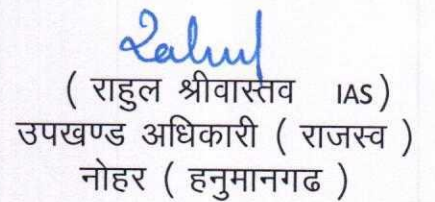 Rahul
( राहुल श्रीवास्तव IAS )
उपखण्ड अधिकारी ( राजस्व )
नोहर ( हनुमानगढ )